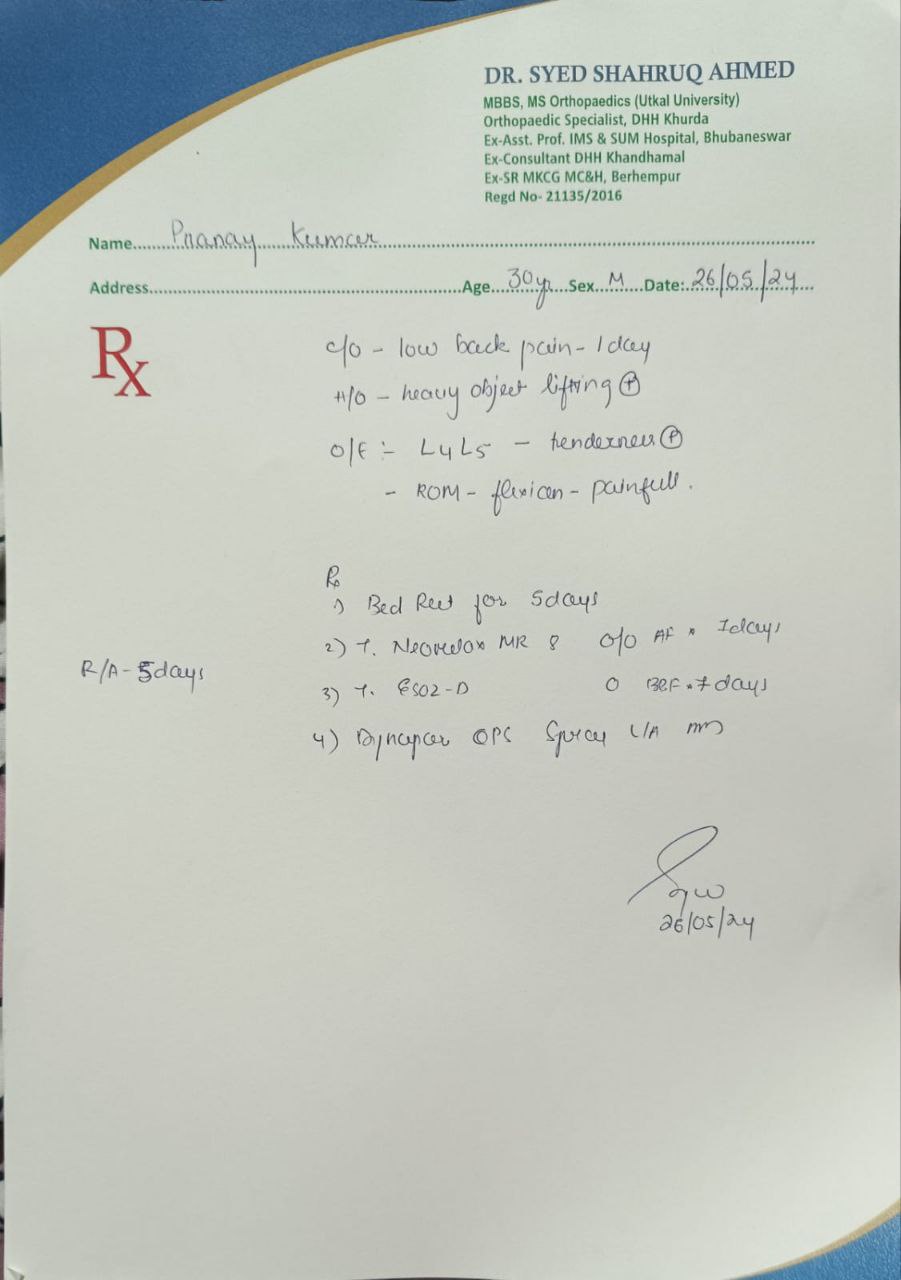 DR. SYED SHAHRUQ AHMED
MBBS, MS Orthopaedics (Utkal University)
Orthopaedic Specialist, DHH Khurda
Ex-Asst. Prof. IMS & SUM Hospital, Bhubaneswar
Ex-Consultant DHH Khandhamal
Ex-SR MKCG MC&H, Berhempur
Regd No- 21135/2016
Name Pranay Kumar
Address Age 30yr Sex M Date: 26/05/24
Rx
c/o - low back pain - 1 day
H/O - heavy object lifting ⊕
O/E :- L4L5 - tenderness ⊕
- ROM - flexion - painfull.
Rx
1) Bed Rest for 5days
2) T. MR 8 O/O AF × 7days
R/A - 5days
3) T. ESOZ-D O BBF × 7days
4) Dynapar QPS Spray L/A
26/05/24